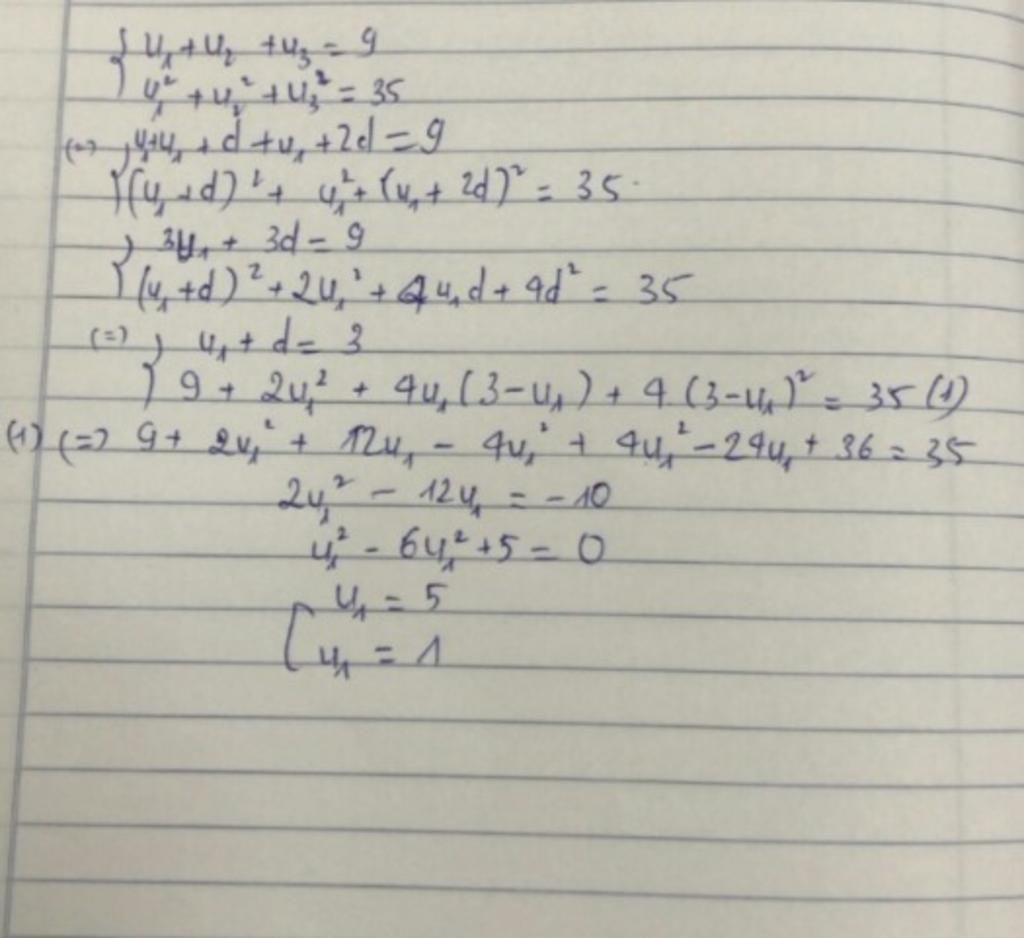 { u₁ + u₂ + u₃ = 9
u₁² + u₂² + u₃² = 35
(=) { u₁ + u₁ + d + u₁ + 2d = 9
(u₁ + d)² + u₁² + (u₁ + 2d)² = 35
{ 3u₁ + 3d = 9
(u₁ + d)² + 2u₁² + 4u₁d + 4d² = 35
(=) { u₁ + d = 3
9 + 2u₁² + 4u₁(3 - u₁) + 4(3 - u₁)² = 35 (1)
(1) (=) 9 + 2u₁² + 12u₁ - 4u₁² + 4u₁² - 24u₁ + 36 = 35
2u₁² - 12u₁ = -10
u₁² - 6u₁² + 5 = 0
[ u₁ = 5
u₁ = 1